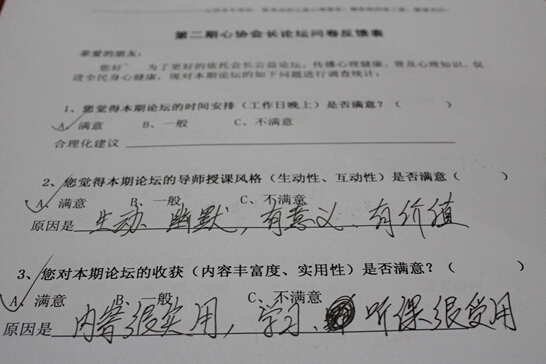 第二期心协会长论坛问卷反馈表
亲爱的朋友：
您好" 为了更好的依托会长公益论坛，传播心理健康、普及心理知识，促
进全民身心健康，现对本期论坛的如下问题进行调查统计：
1、您觉得本期论坛的时间安排（工作日晚上）是否满意？（ ）
A、满意 B、一般 C、不满意
合理化建议
2、您觉得本期论坛的导师授课风格（生动性、互动性）是否满意（ ）
A、满意 B、一般 C、不满意
原因是 生动、幽默，有意义、有价值
3、您对本期论坛的收获（内容丰富度、实用性）是否满意？（ ）
A、满意 B、一般 C、不满意
原因是 内容很实用，学习、听课很受用